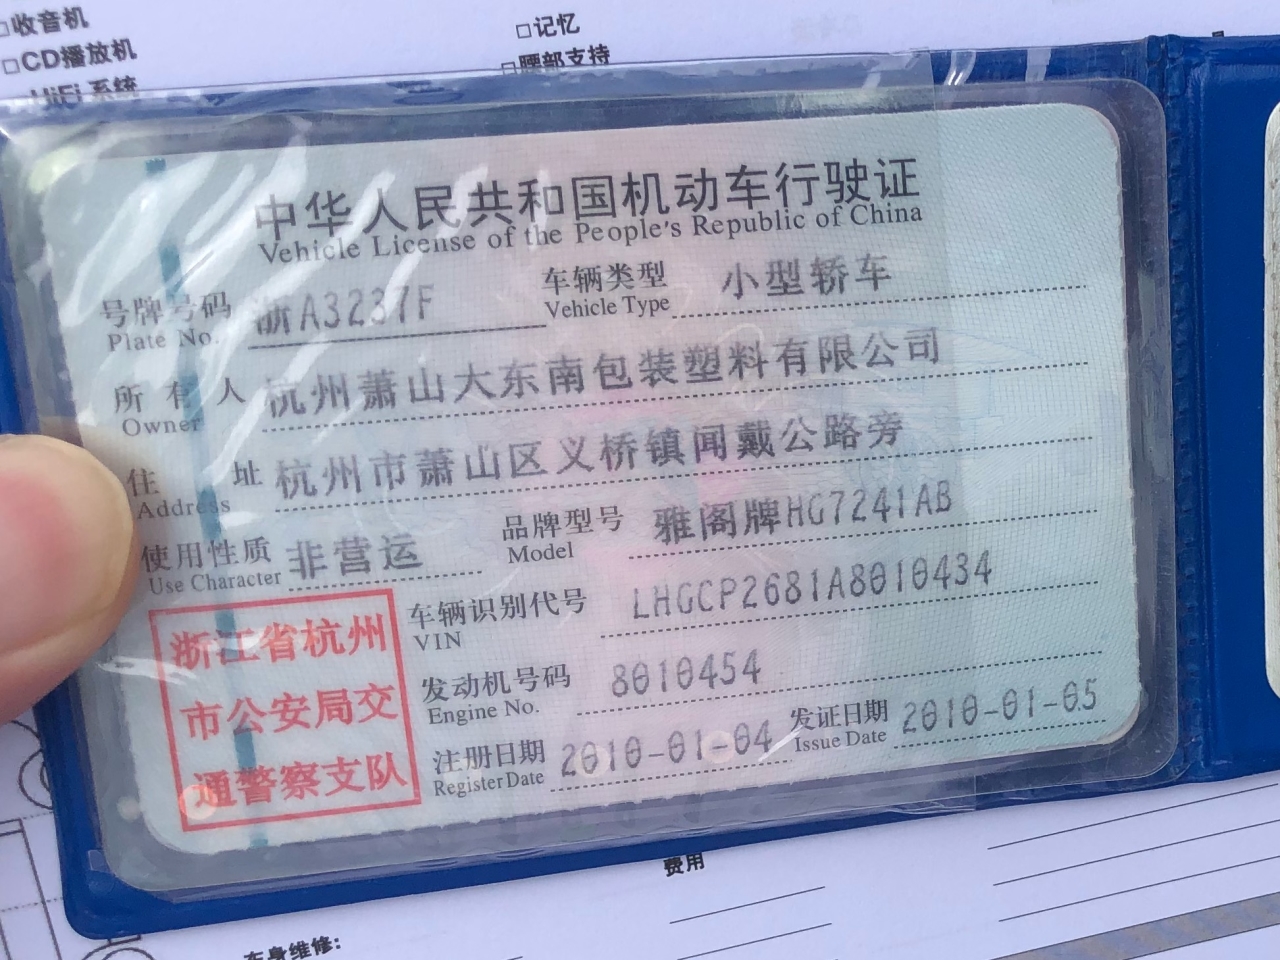 □收音机
□记忆
□CD播放机
□腰部支持
HiFi 系统
中华人民共和国机动车行驶证
Vehicle License of the People's Republic of China
号牌号码 浙A3237F 车辆类型 小型轿车
Plate No. Vehicle Type
所有人 杭州萧山大东南包装塑料有限公司
Owner
住址 杭州市萧山区义桥镇闻戴公路旁
Address
使用性质 非营运 品牌型号 雅阁牌HG7241AB
Use Character Model
车辆识别代号 LHGCP2681A8010434
VIN
发动机号码 8010454
Engine No.
注册日期 2010-01-04 发证日期 2010-01-05
Register Date Issue Date
浙江省杭州
市公安局交
通警察支队
费用
车身维修: